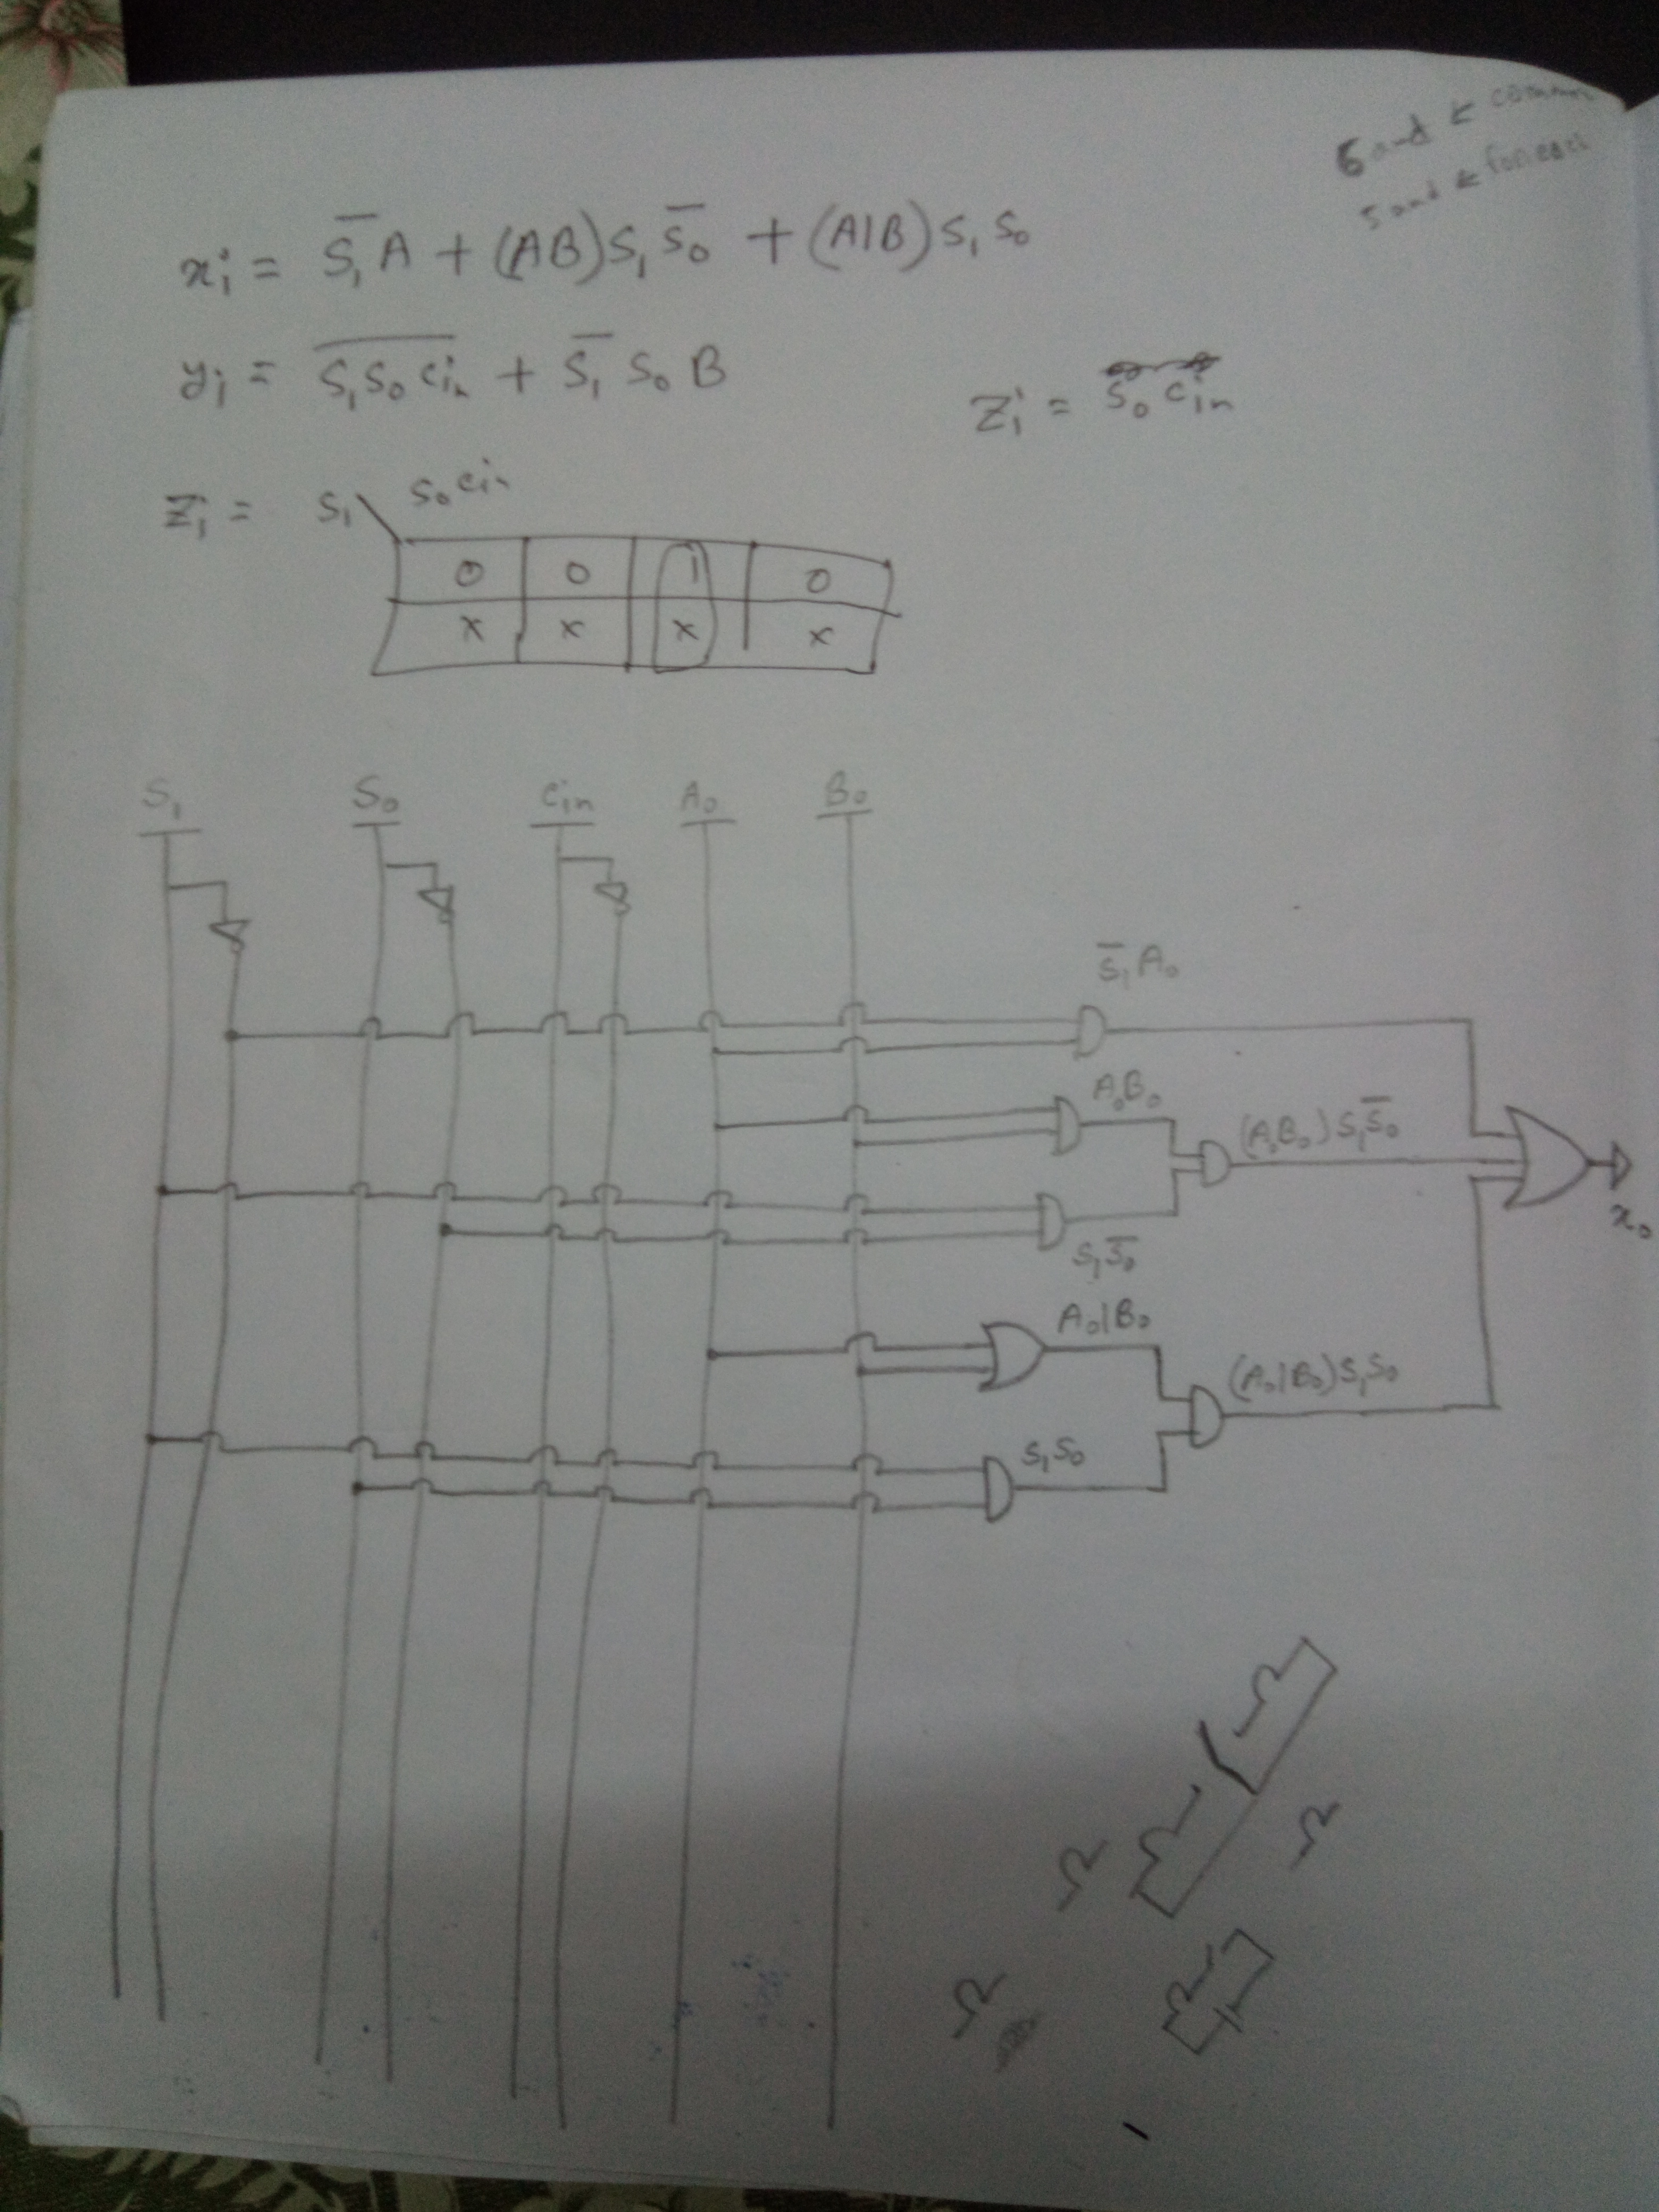 6 and ← common
5 and ← for each
xᵢ = S̅₁A + (AB)S₁S̅₀ + (A|B)S₁S₀
yᵢ = \overline{S₁S₀Cin} + S̅₁S₀B
Zᵢ = S₀Cin
Zᵢ = S₁ \ S₀Cin
0 0 1 0
x x x x
S₁ S₀ Cin A₀ B₀
S̅₁A₀
A₀B₀
(A₀B₀)S₁S̅₀
x₀
S₁S̅₀
A₀|B₀
(A₀|B₀)S₁S₀
S₁S₀